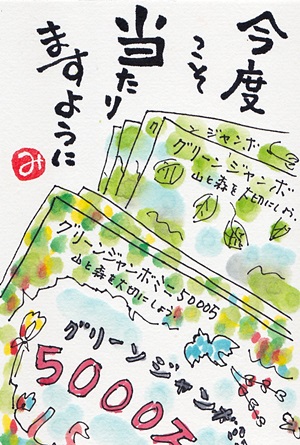 今度
こそ
当たり
ますように
み
グリーンジャンボ
グリーンジャンボ
山と森を大切にしよう
グリーンジャンボミニ5000万
山と森を大切にしよう
グリーンジャンボミニ
5000万